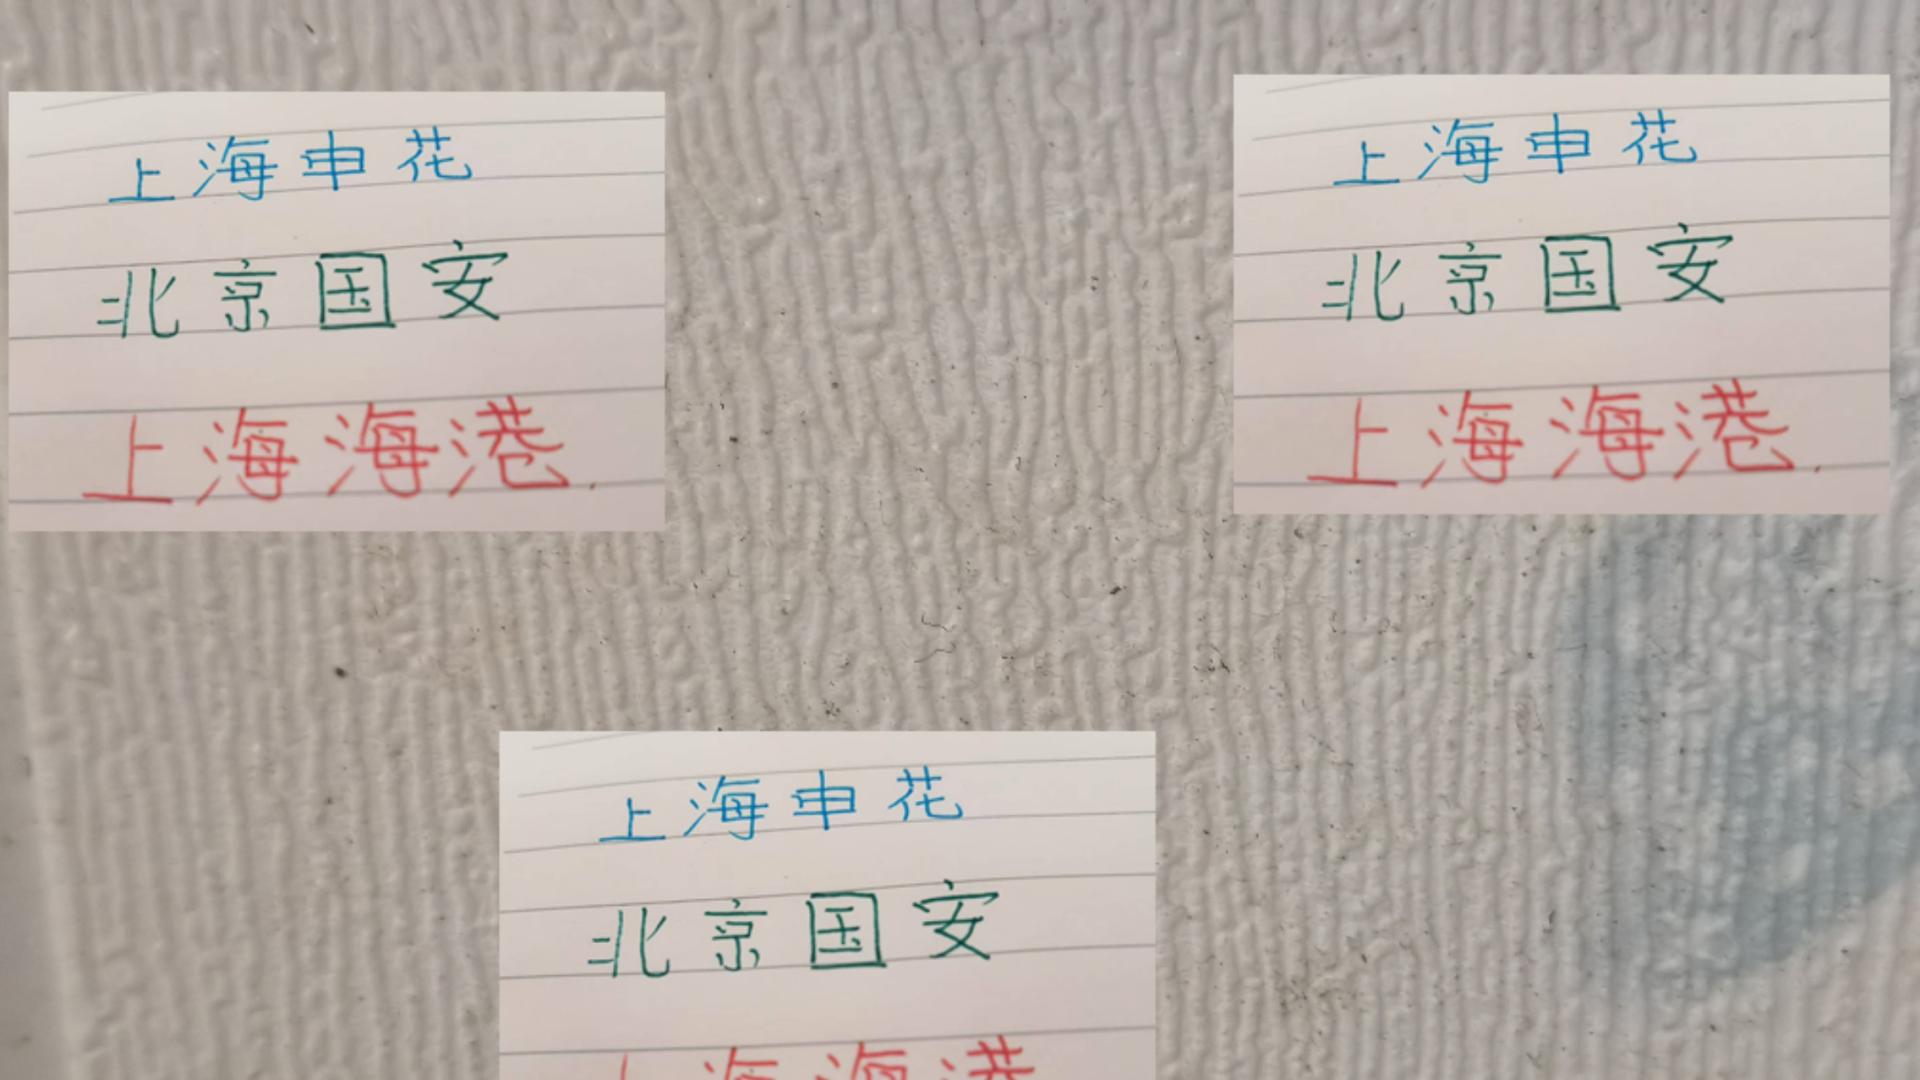 上海申花
北京国安
上海海港.
上海申花
北京国安
上海海港.
上海申花
北京国安
上海海港